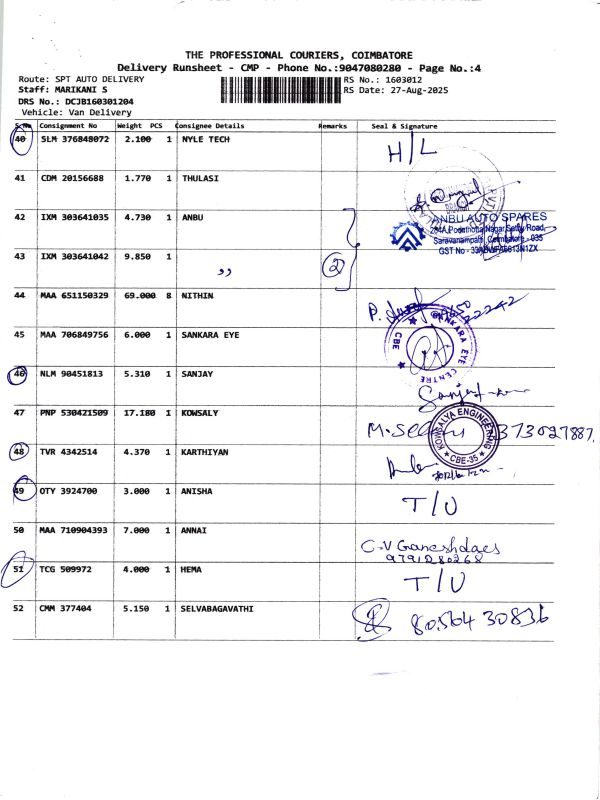 THE PROFESSIONAL COURIERS, COIMBATORE
Delivery Runsheet - CMP - Phone No.:9047080280 - Page No.:4
Route: SPT AUTO DELIVERY
RS No.: 1603012
Staff: MARIKANI S
RS Date: 27-Aug-2025
DRS No.: DCJB160301204
Vehicle: Van Delivery
S.No Consignment No Weight PCS Consignee Details Remarks Seal & Signature
40 SLM 376848072 2.100 1 NYLE TECH H/L
41 CDM 20156688 1.770 1 THULASI
42 IXM 303641035 4.730 1 ANBU
ANBU AUTO SPARES
Saravanampatti, Coimbatore - 035
43 IXM 303641042 9.850 1 ,, 2
44 MAA 651150329 69.000 8 NITHIN
45 MAA 706849756 6.000 1 SANKARA EYE
SANKARA EYE CENTRE
CBE
46 NLM 90451813 5.310 1 SANJAY
47 PNP 530421509 17.180 1 KOWSALY
KOWSALYA ENGINEERING
CBE-35
48 TVR 4342514 4.370 1 KARTHIYAN
49 OTY 3924700 3.000 1 ANISHA T/U
50 MAA 710904393 7.000 1 ANNAI C.V Ganeshdaes
9791280268
51 TCG 509972 4.000 1 HEMA T/U
52 CMM 377404 5.150 1 SELVABAGAVATHI 80564 30836